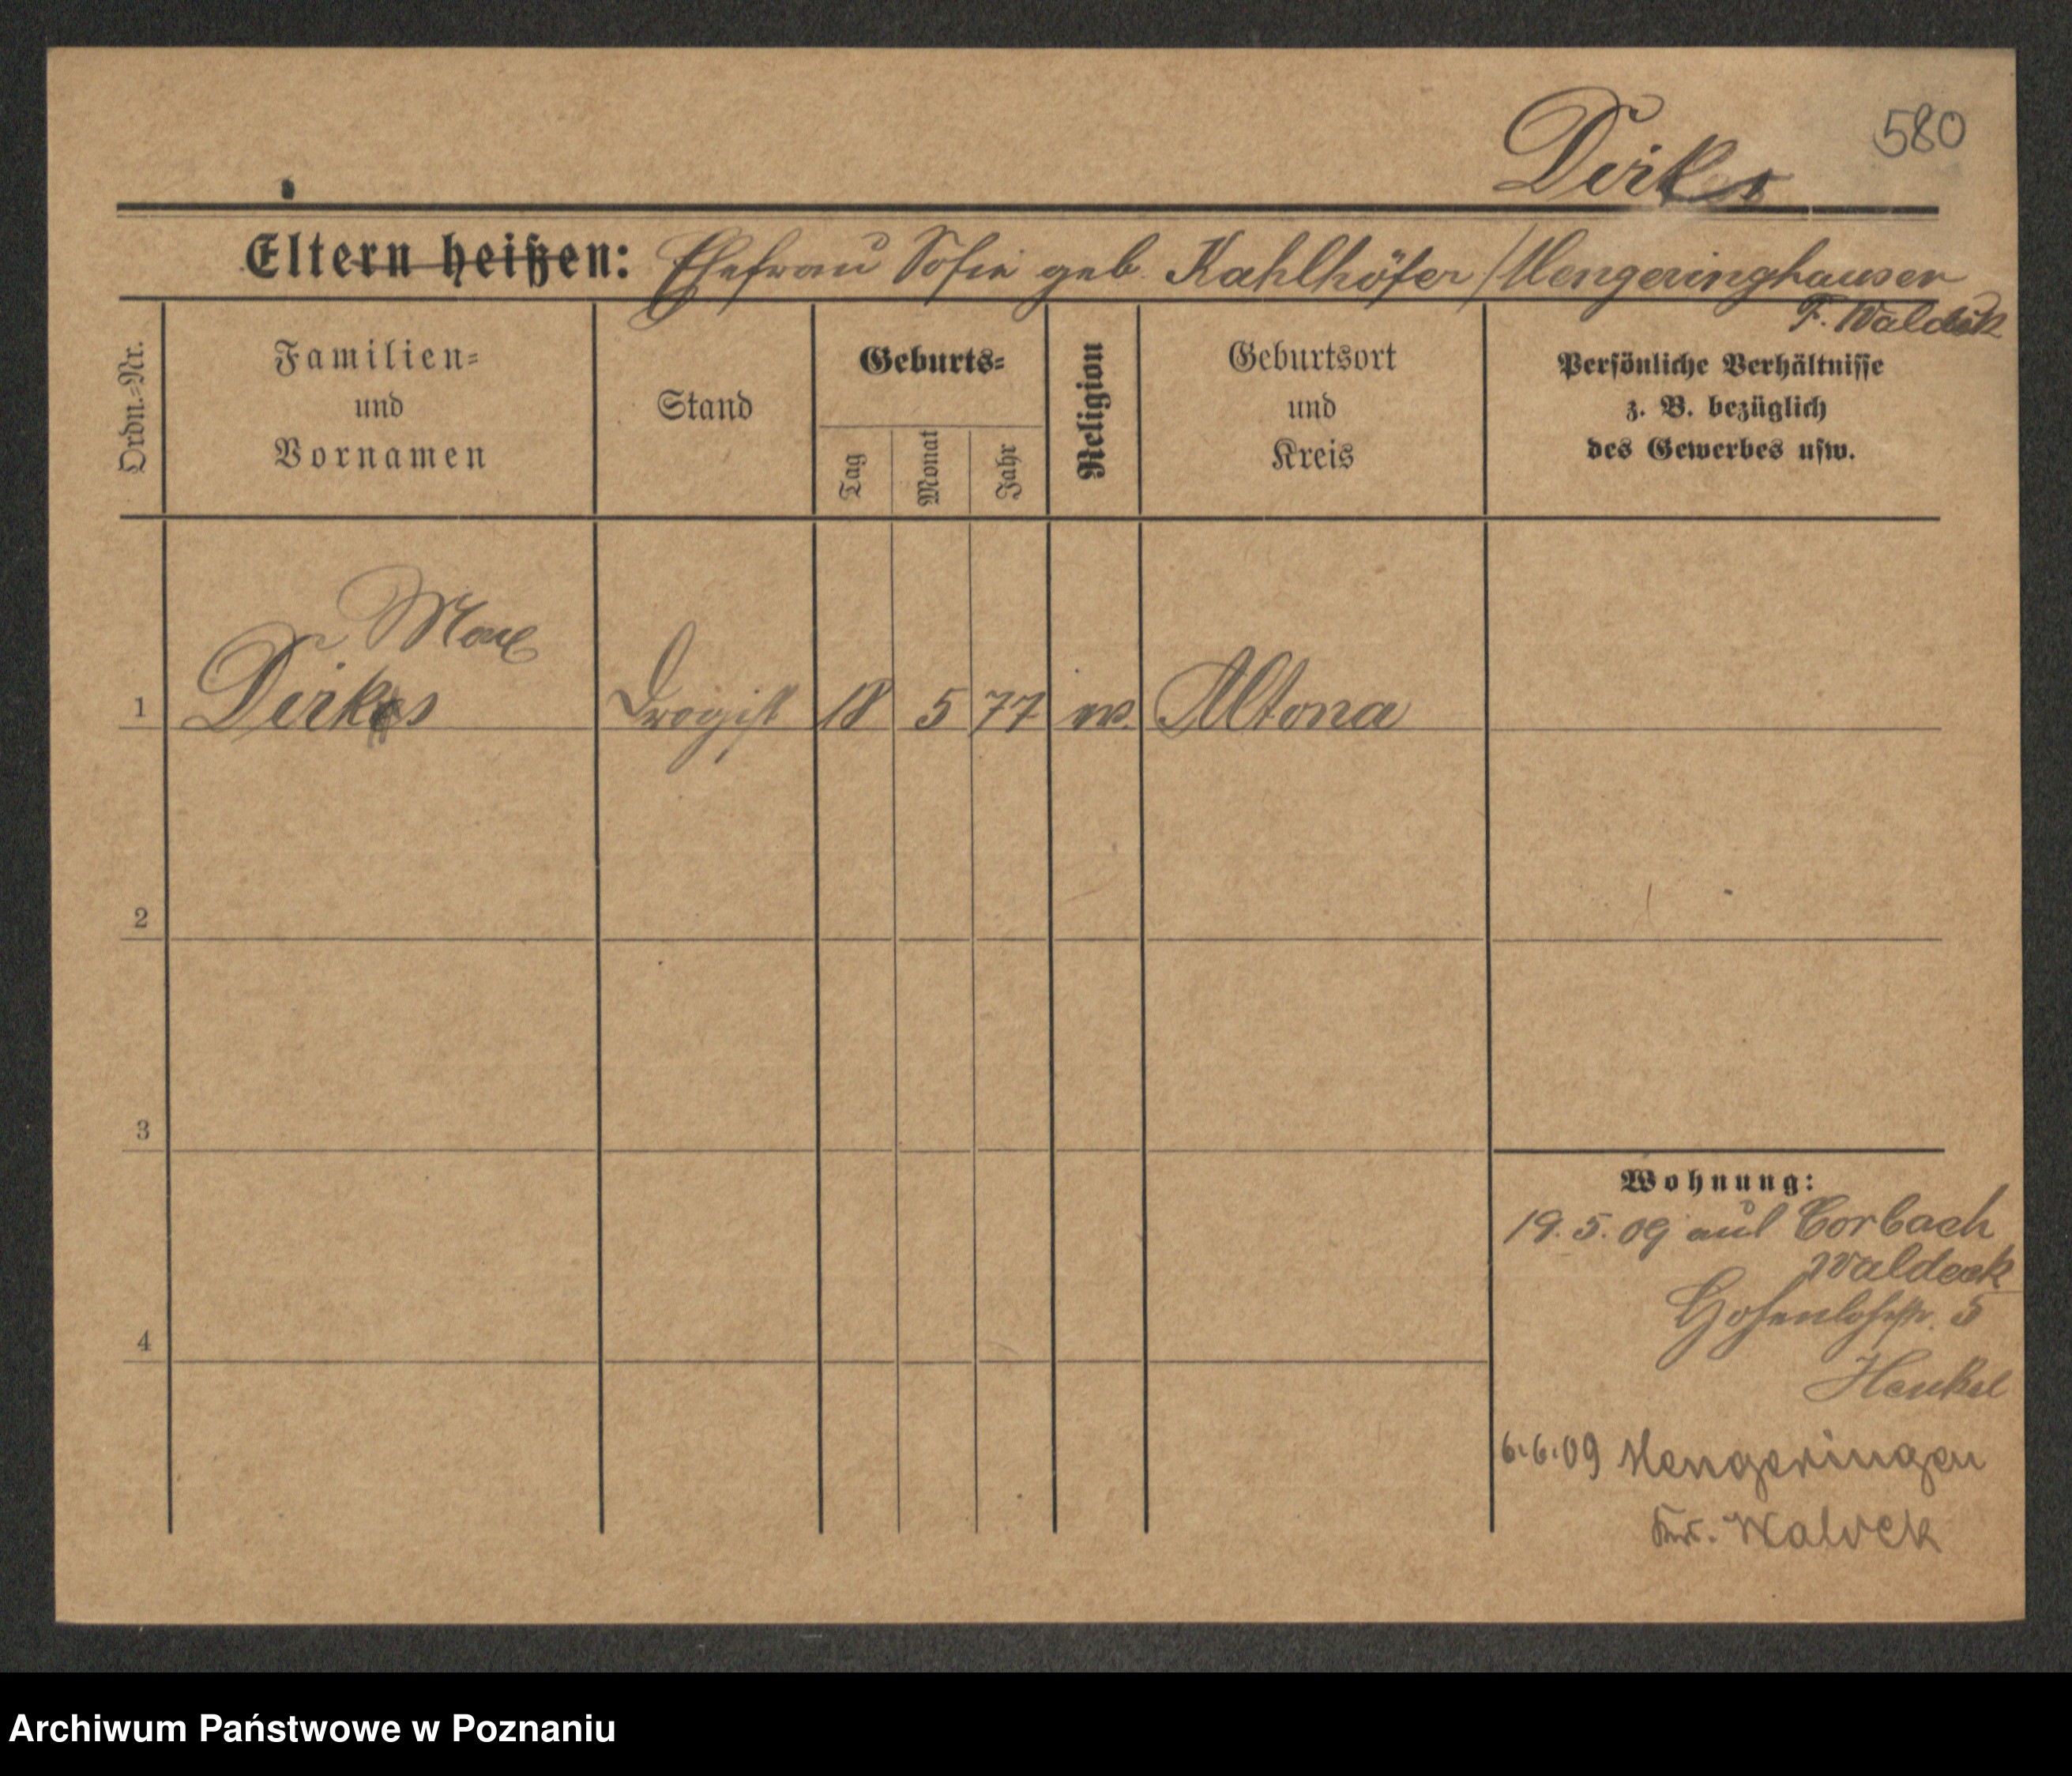 580
Dirks
Eltern heißen: Ehefrau Sofie geb. Kahlhöfer / Mengeringhausen
F. Waldeck
Ordn.=Nr.
Familien=
und
Vornamen
Stand
Geburts=
Tag
Monat
Jahr
Religion
Geburtsort
und
Kreis
Persönliche Verhältnisse
z. B. bezüglich
des Gewerbes usw.
Max
1 Dirks Drogist 18 5 77 ev. Altona
2
3
4
Wohnung:
19.5.09 aus Corbach
Waldeck
Hohenlohestr. 5
Henkel
6.6.09 Mengeringen
Krs. Waldek
Archiwum Państwowe w Poznaniu